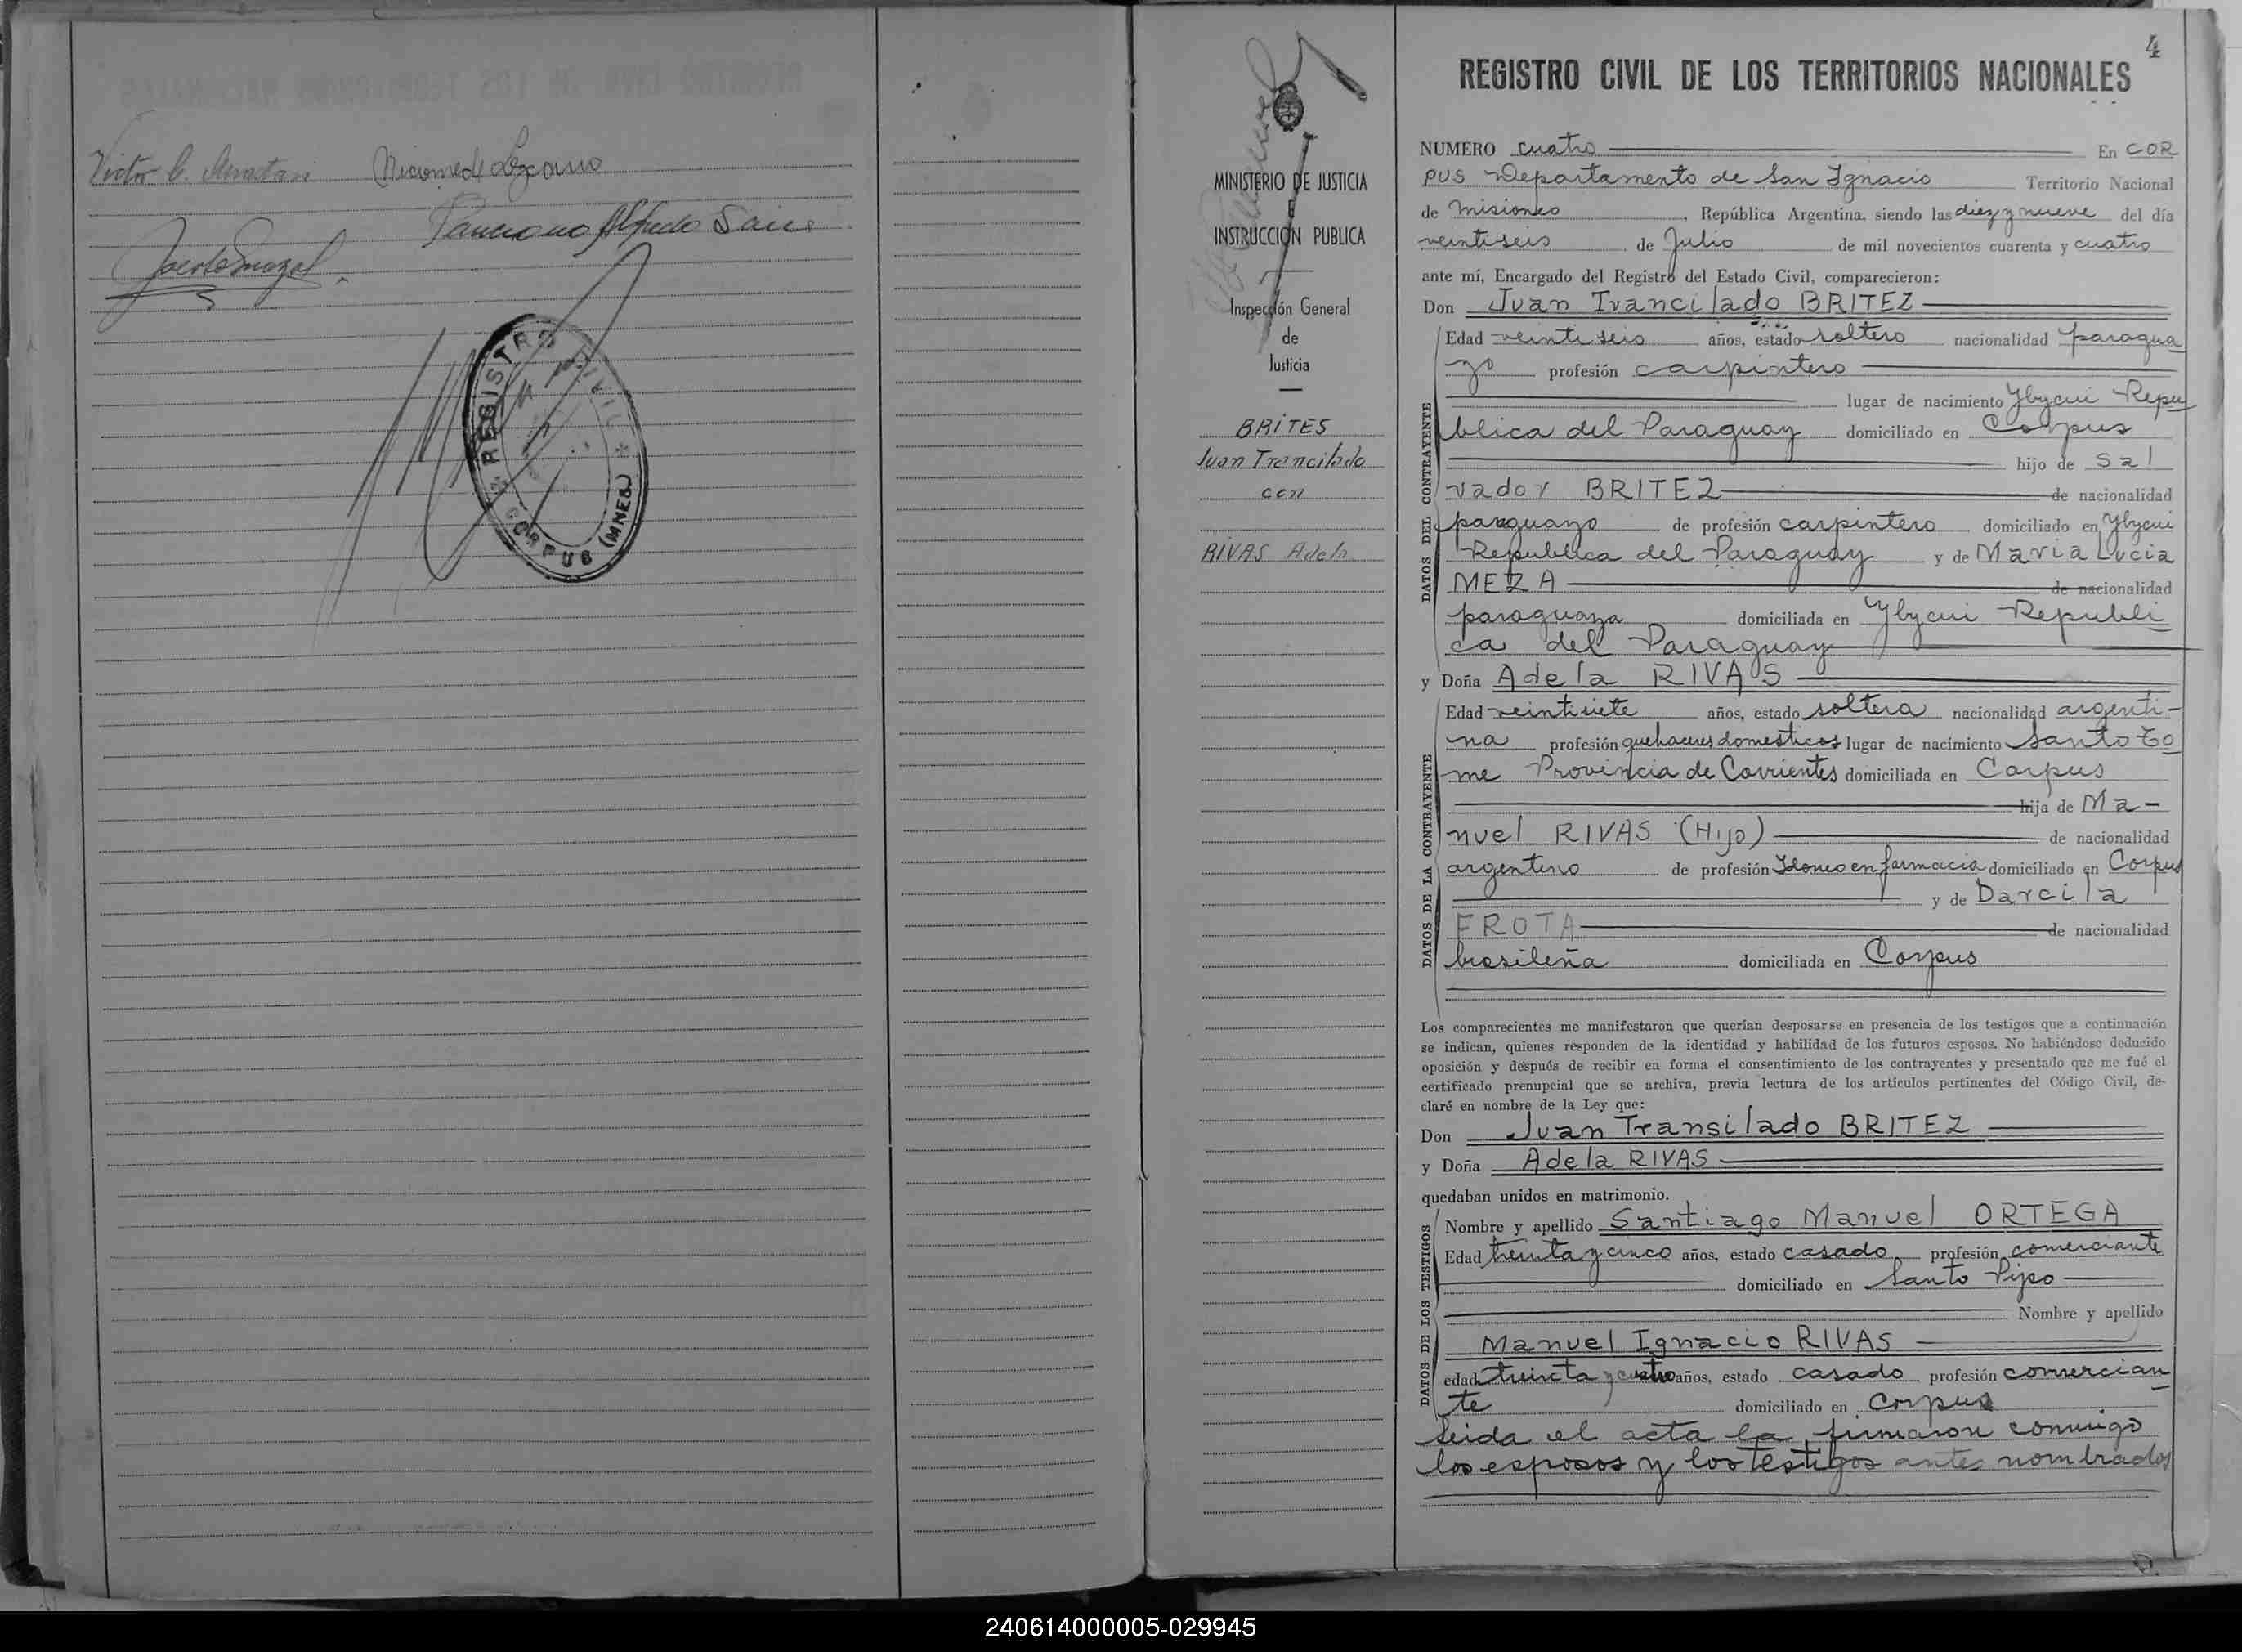 Victor C.
Nicomede Lezcano
Alfredo
REGISTRO CIVIL
CORPUS (MNES.)
MINISTERIO DE JUSTICIA
E
INSTRUCCIÓN PUBLICA
Inspección General
de
Justicia
BRITES
Juan Trancilado
con
RIVAS Adela
4
REGISTRO CIVIL DE LOS TERRITORIOS NACIONALES
NUMERO cuatro En COR
PUS Departamento de San Ignacio Territorio Nacional
de Misiones, República Argentina, siendo las diez y nueve del día
veintiseis de Julio de mil novecientos cuarenta y cuatro
ante mí, Encargado del Registro del Estado Civil, comparecieron:
Don Juan Trancilado BRITEZ
Edad veinti seis años, estado soltero nacionalidad paragua
yo profesión carpintero
lugar de nacimiento Ybycui Repu
blica del Paraguay domiciliado en Corpus
hijo de Sal
vador BRITEZ de nacionalidad
paraguayo de profesión carpintero domiciliado en Ybycui
Republica del Paraguay y de Maria Lucia
MEZA de nacionalidad
paraguaya domiciliada en Ybycui Republi
ca del Paraguay
DATOS DEL CONTRAYENTE
y Doña Adela RIVAS
Edad veintisiete años, estado soltera nacionalidad argenti-
na profesión quehaceres domesticos lugar de nacimiento Santo To
me Provincia de Corrientes domiciliada en Corpus
hija de Ma-
nuel RIVAS (Hijo) de nacionalidad
argentino de profesión Idoneo en farmacia domiciliado en Corpus
y de Darcila
FROTA de nacionalidad
brasileña domiciliada en Corpus
DATOS DE LA CONTRAYENTE
Los comparecientes me manifestaron que querían desposarse en presencia de los testigos que a continuación
se indican, quienes responden de la identidad y habilidad de los futuros esposos. No habiéndose deducido
oposición y después de recibir en forma el consentimiento de los contrayentes y presentado que me fué el
certificado prenupcial que se archiva, previa lectura de los artículos pertinentes del Código Civil, de-
claré en nombre de la Ley que:
Don Juan Transilado BRITEZ
y Doña Adela RIVAS
quedaban unidos en matrimonio.
Nombre y apellido Santiago Manuel ORTEGA
Edad treinta y cinco años, estado casado profesión comerciante
domiciliado en Santo Pipo
Nombre y apellido
Manuel Ignacio RIVAS
edad treinta y cuatro años, estado casado profesión comercian
te domiciliado en Corpus
DATOS DE LOS TESTIGOS
Leida el acta la firmaron conmigo
los esposos y los testigos antes nombrados
240614000005-029945